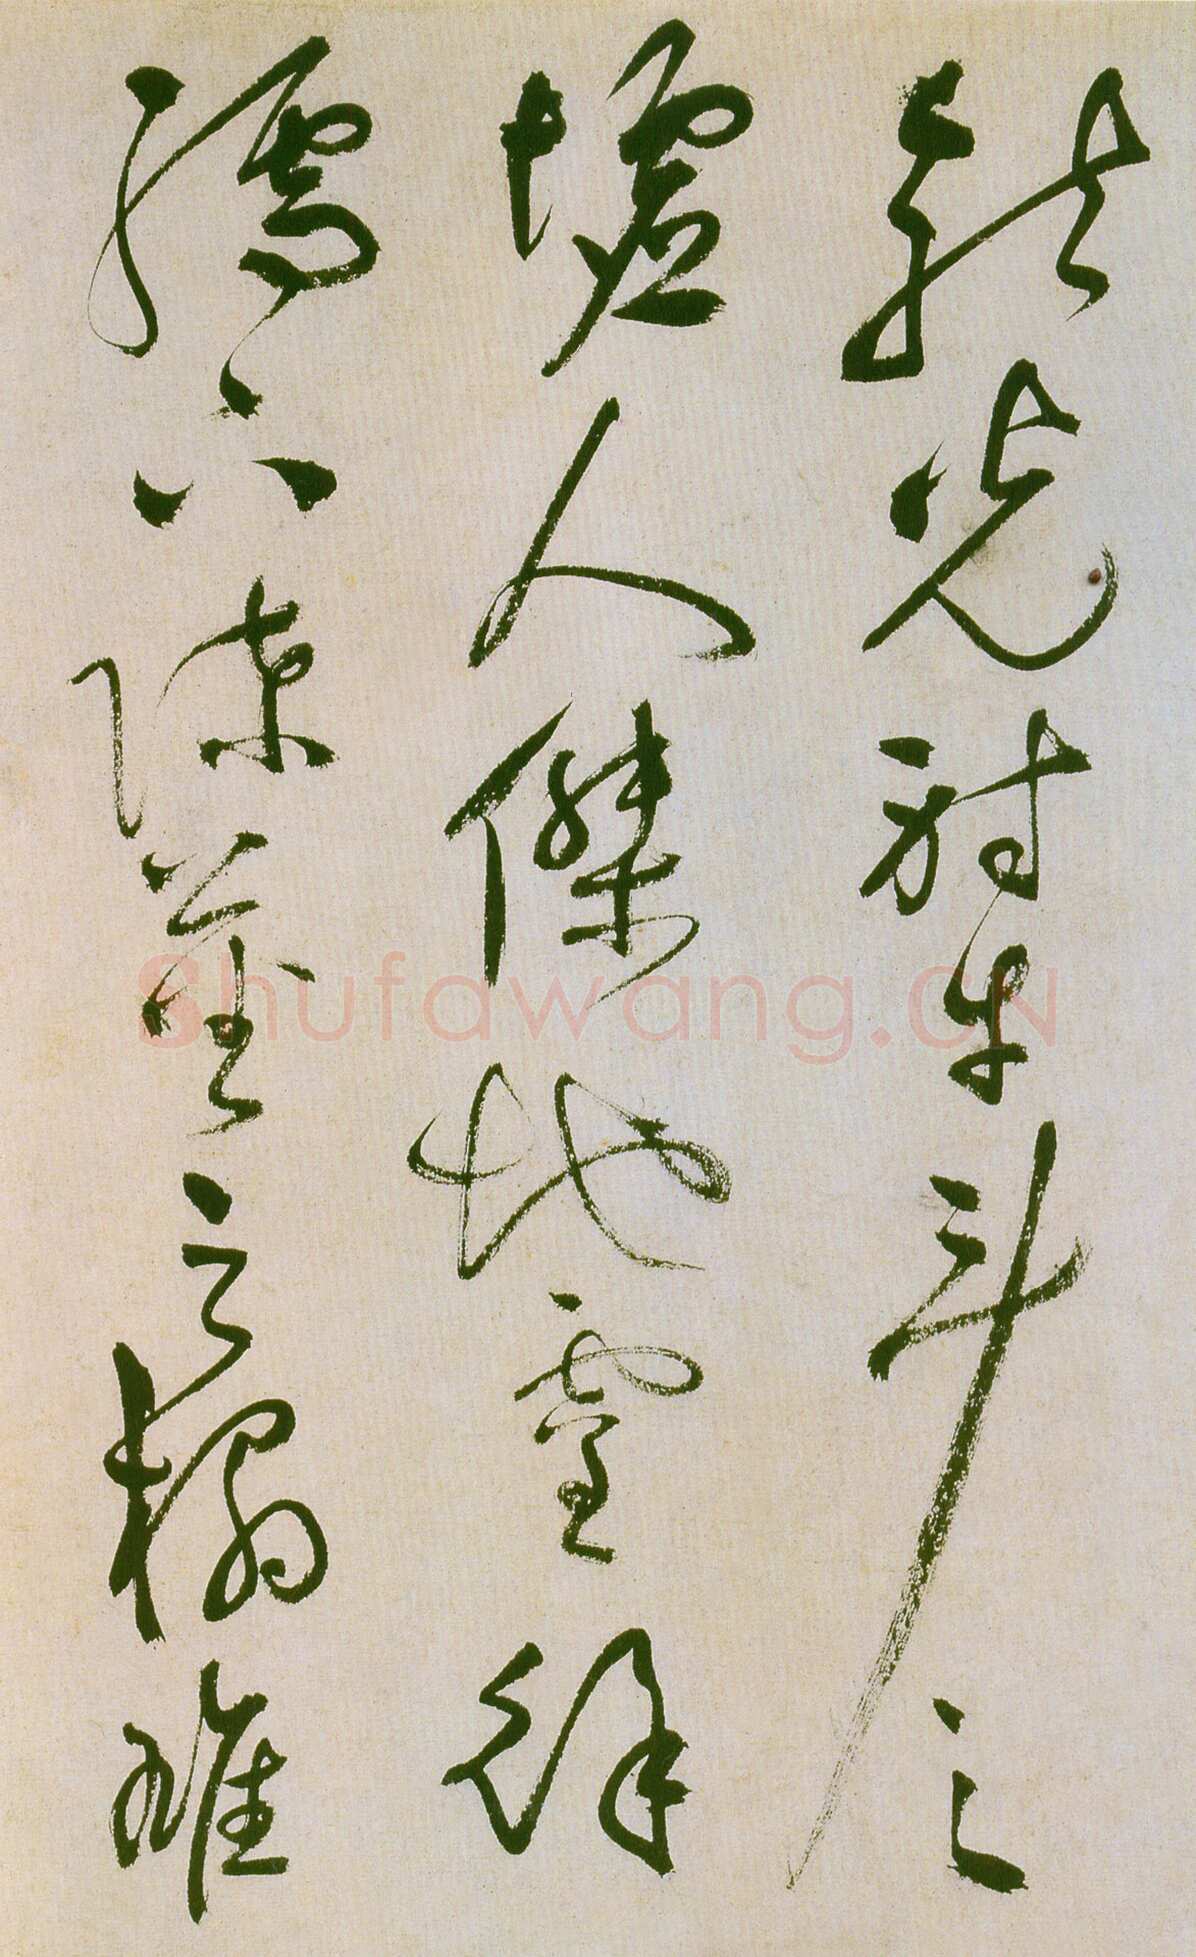 龍光射牛斗之
墟人傑地靈徐
孺下陳蕃之榻雄
Shufawang.CN